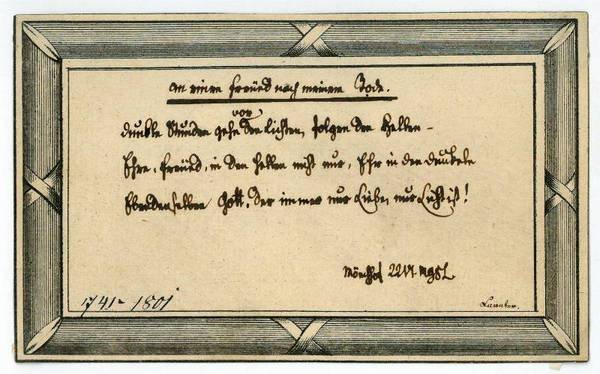 An einen Freund nach meinem Tode.
vor
Dunkle Stunden gehn den lichten, folgen den hellen –
Ehre, Freund, in den hellen nicht nur, Ehr in den dunkeln
Ebendenselben Gott, der immer nur Liebe, nur Licht ist!
1741-1801
Lavater.